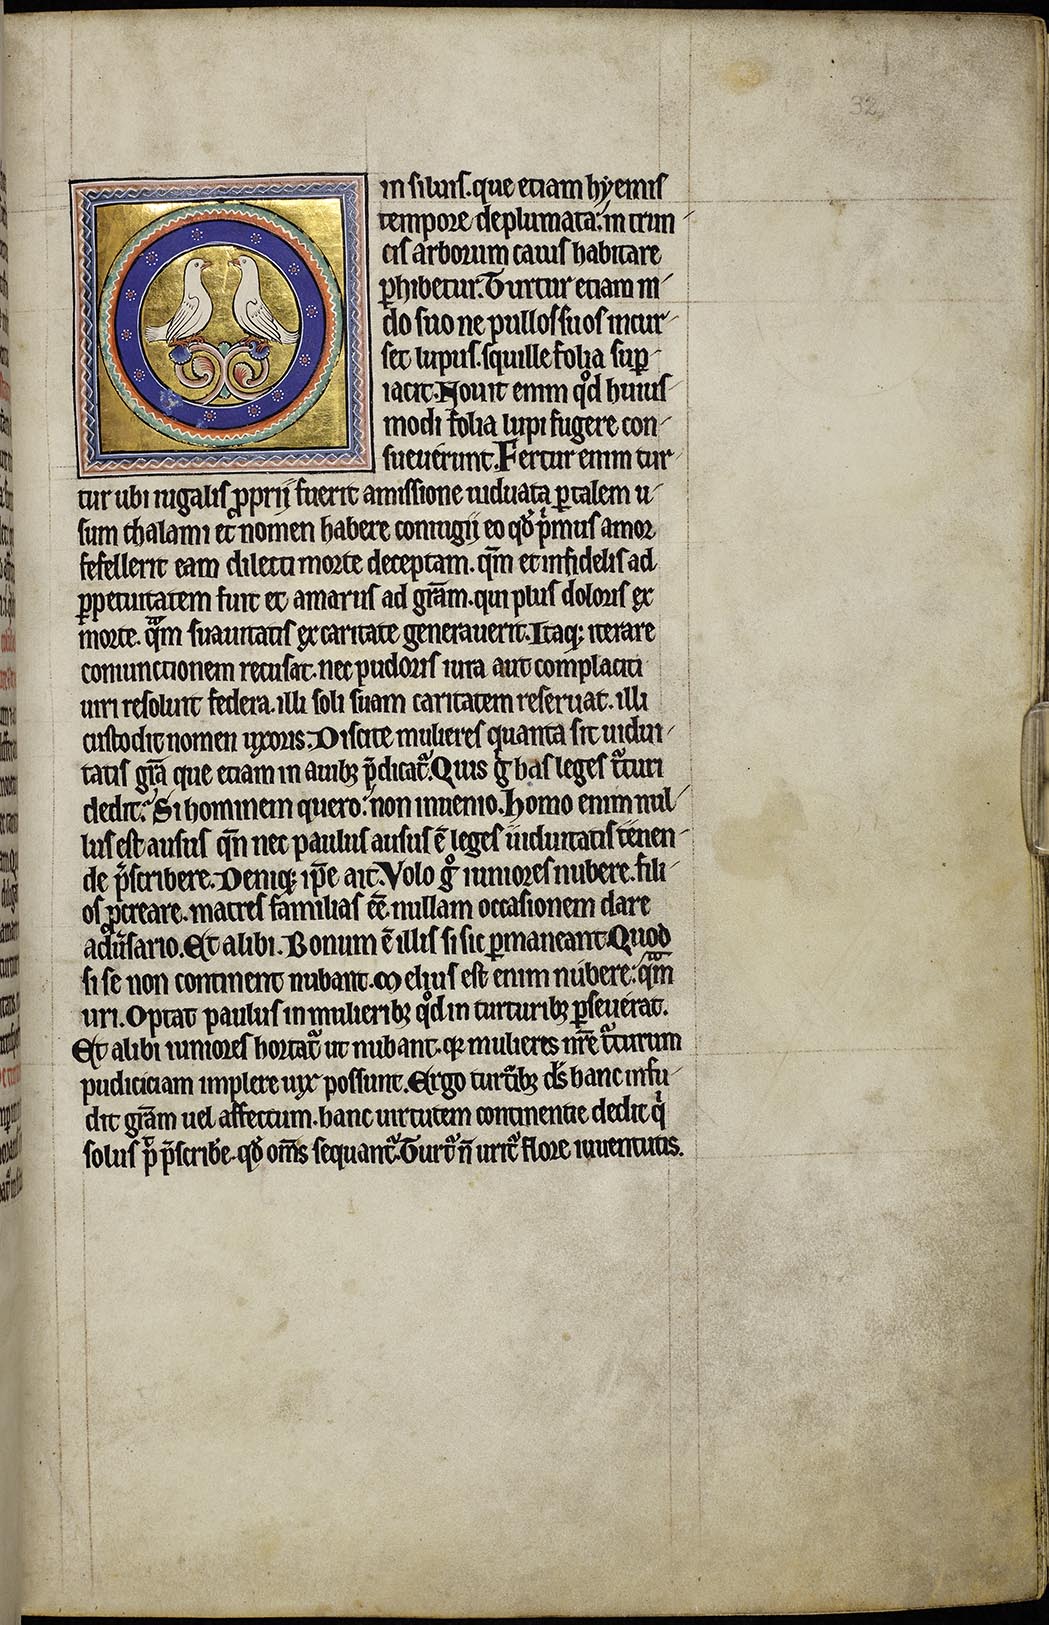 32
in siluis. que etiam hyemis
tempore deplumata: in trun
cis arborum cauis habitare
phibetur. Turtur etiam ni
do suo ne pullos suos incur
set lupus. squille folia sup
iacit. Nouit enim qd huius
modi folia lupi fugere con
sueuerunt. Fertur enim tur
tur ubi iugalis pprij fuerit amissione uiduata ptalem u
sum thalami et nomen habere coniugij eo qd pmus amor
fefellerit eam dilecti morte deceptam. qm et infidelis ad
ppetuitatem fuit et amarus ad gram. qui plus doloris ex
morte. qm suauitatis ex caritate generauerit. Itaq; iterare
coniunctionem recusat. nec pudoris iura aut complaciti
uiri resoluit federa. illi soli suam caritatem reseruat. illi
custodit nomen uxoris. Discite mulieres quanta sit uidui
tatis gra que etiam in auib; pdicat. Quis g has leges tturi
dedit. Si hominem quero: non inuenio. Homo enim nul
lus est ausus qn nec paulus ausus e leges uiduitatis tenen
de pscribere. Deniq; ipe ait. Volo g iuniores nubere. fili
os pcreare. matres familias ee. nullam occasionem dare
adusario. Et alibi. Bonum e illis si sic pmaneant. Quod
si se non continent nubant. Melius est enim nubere: qm
uri. Optat paulus in mulierib; qd in turturib; pseuerat.
Et alibi iuniores hortat ut nubant. qr mulieres nre tturum
pudiciciam implere uix possunt. Ergo turtib; ds hanc infu
dit gram uel affectum. hanc uirtutem continentie dedit q
solus p pscribe. qd oms sequant. Turt n urit flore iuuentutis.